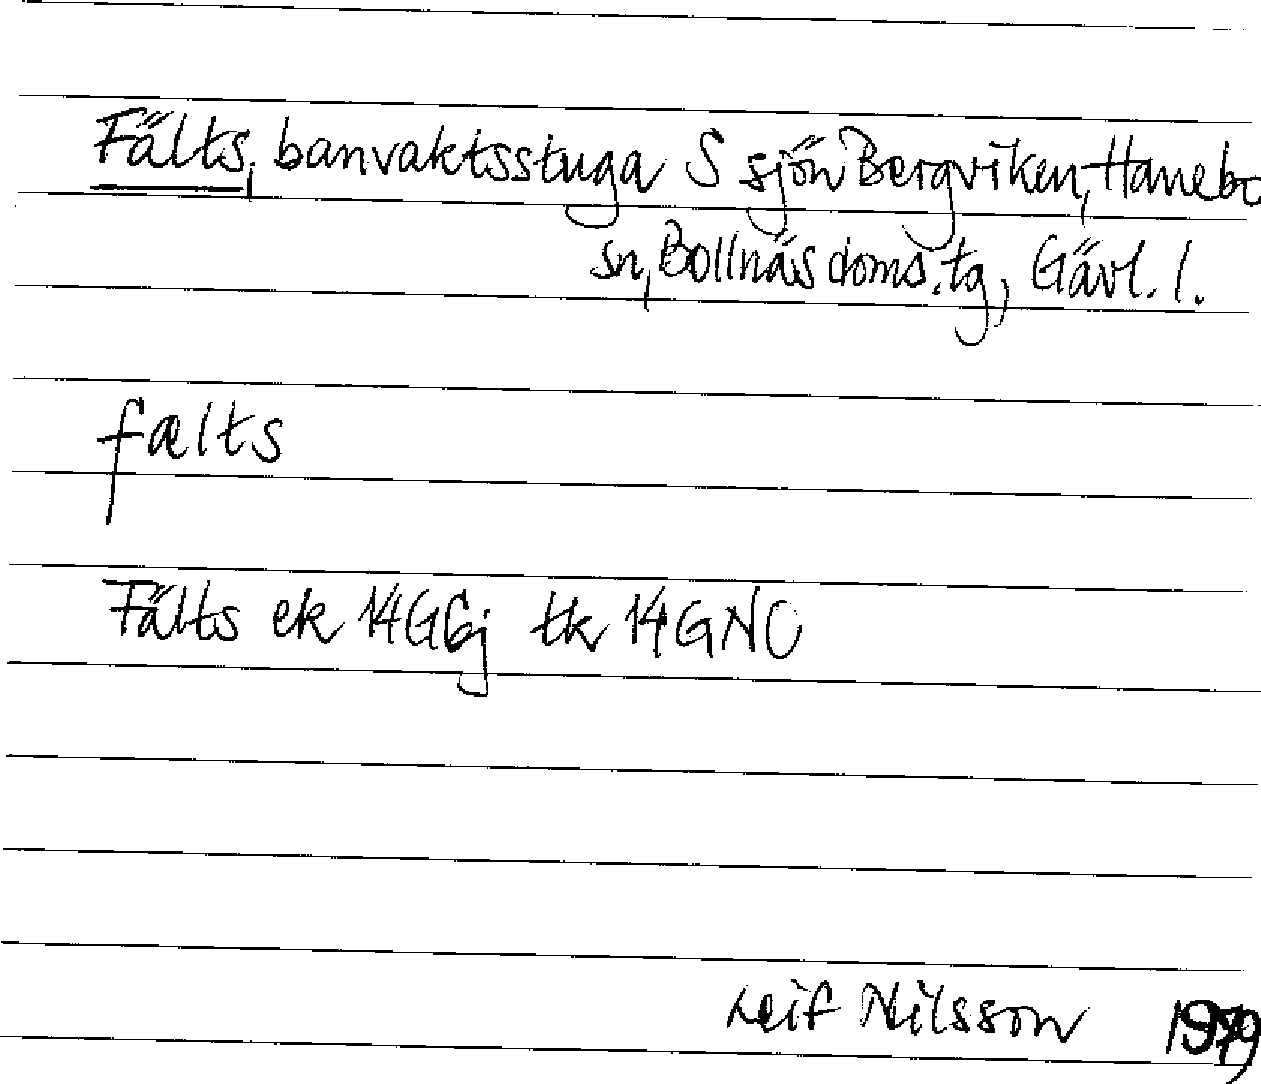 Fälts, banvaktsstuga S sjön Bergviken, Hanebo
sn, Bollnäs doms.tg, Gävl. l.
fælts
Fälts ek 14G6j tk 14GNO
Leif Nilsson 1979